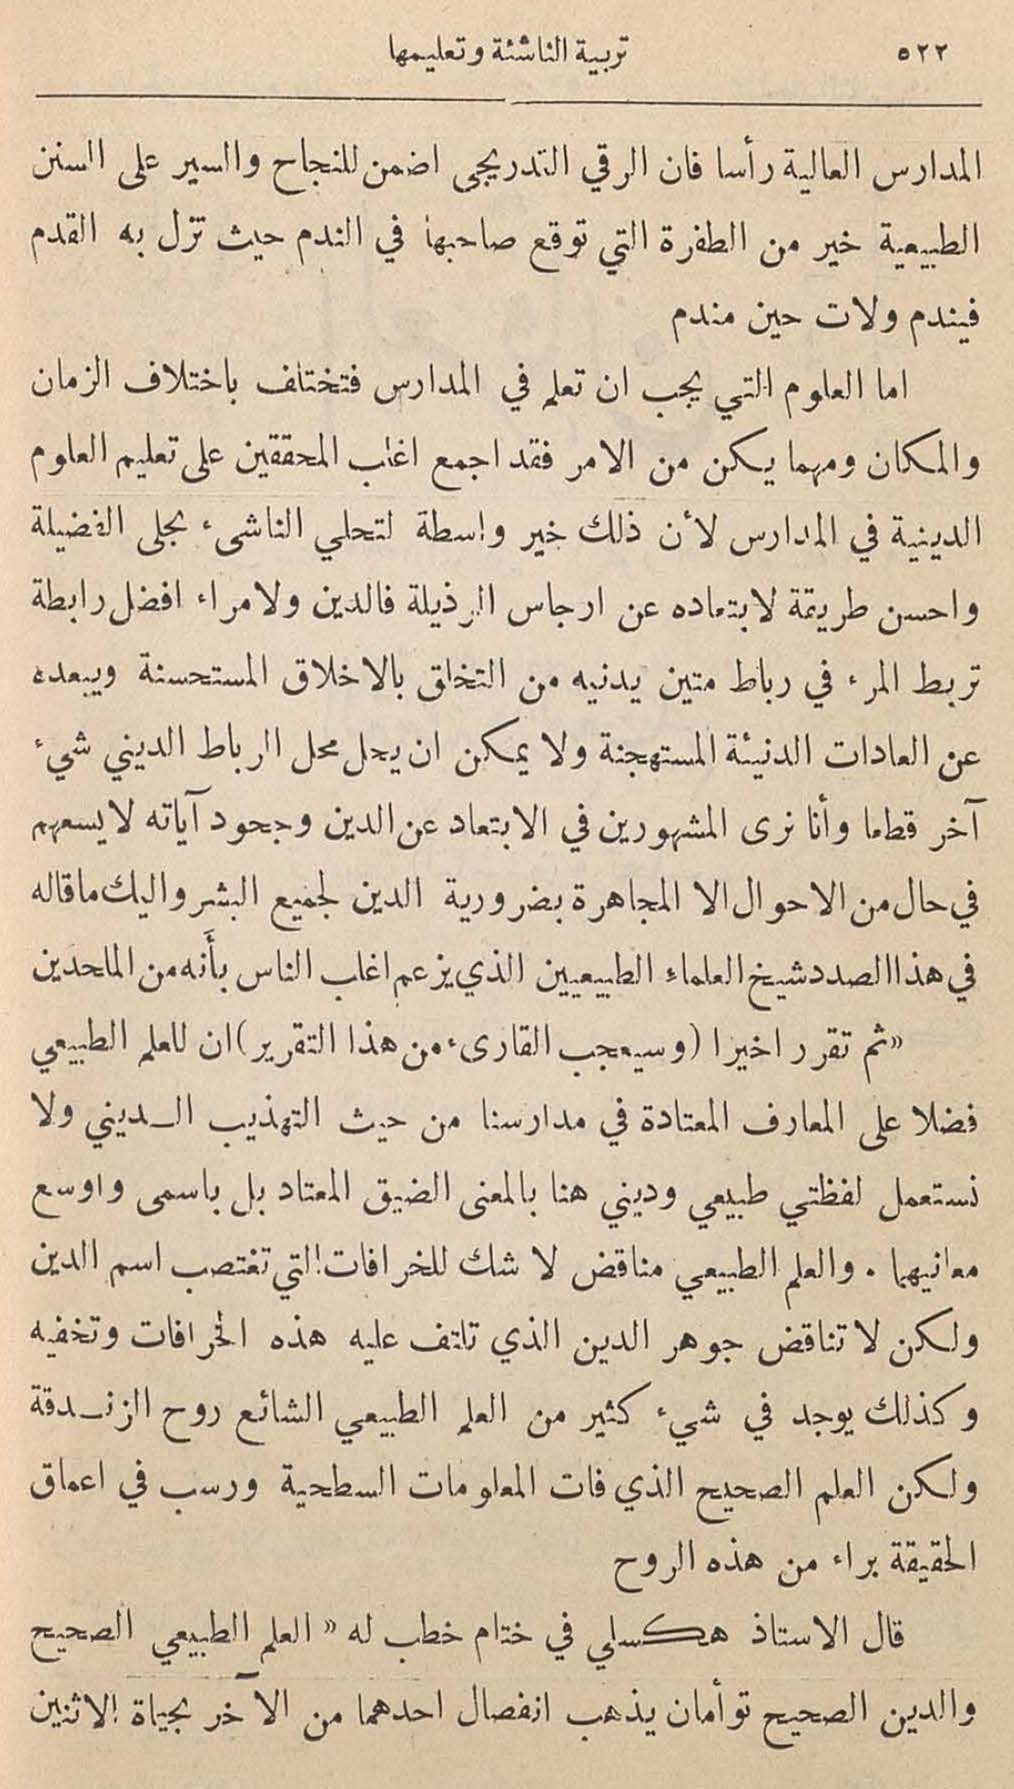 ٥٢٢ تربية الناشئة وتعليمها
المدارس العالية رأسا فان الرقي التدريجى اضمن للنجاح والسير على السنن
الطبيعية خير من الطفرة التي توقع صاحبها في الندم حيث تزل به القدم
فيندم ولات حين مندم
اما العلوم التي يجب ان تعلم في المدارس فتختلف باختلاف الزمان
والمكان ومهما يكن من الامر فقد اجمع اغلب المحققين على تعليم العلوم
الدينية في المدارس لأن ذلك خير واسطة لتحلي الناشىء بحلى الفضيلة
واحسن طريقة لابتعاده عن ارجاس الرذيلة فالدين ولا مراء افضل رابطة
تربط المرء في رباط متين يدنيه من التخلق بالاخلاق المستحسنة ويبعده
عن العادات الدنيئة المستهجنة ولا يمكن ان يحل محل الرباط الديني شيء
آخر قطعا وأنا نرى المشهورين في الابتعاد عن الدين وجحود آياته لا يسعهم
في حال من الاحوال الا المجاهرة بضرورية الدين لجميع البشر واليك ماقاله
في هذا الصدد شيخ العلماء الطبيعيين الذي يزعم اغلب الناس بأَنه من الملحدين
«ثم تقرر اخيرا (وسيعجب القارىء من هذا التقرير) ان للعلم الطبيعي
فضلا على المعارف المعتادة في مدارسنا من حيث التهذيب الـديني ولا
نستعمل لفظتي طبيعي وديني هنا بالمعنى الضيق المعتاد بل باسمى واوسع
معانيهما . والعلم الطبيعي مناقض لا شك للخرافات التي تغتصب اسم الدين
ولكن لا تناقض جوهر الدين الذي تلتف عليه هذه الخرافات وتخفيه
وكذلك يوجد في شيء كثير من العلم الطبيعي الشائع روح الزنـدقة
ولكن العلم الصحيح الذي فات المعلومات السطحية ورسب في اعماق
الحقيقة براء من هذه الروح
قال الاستاذ هكسلي في ختام خطب له « العلم الطبيعي الصحيح
والدين الصحيح توأمان يذهب انفصال احدهما من الآخر بحياة الاثنين